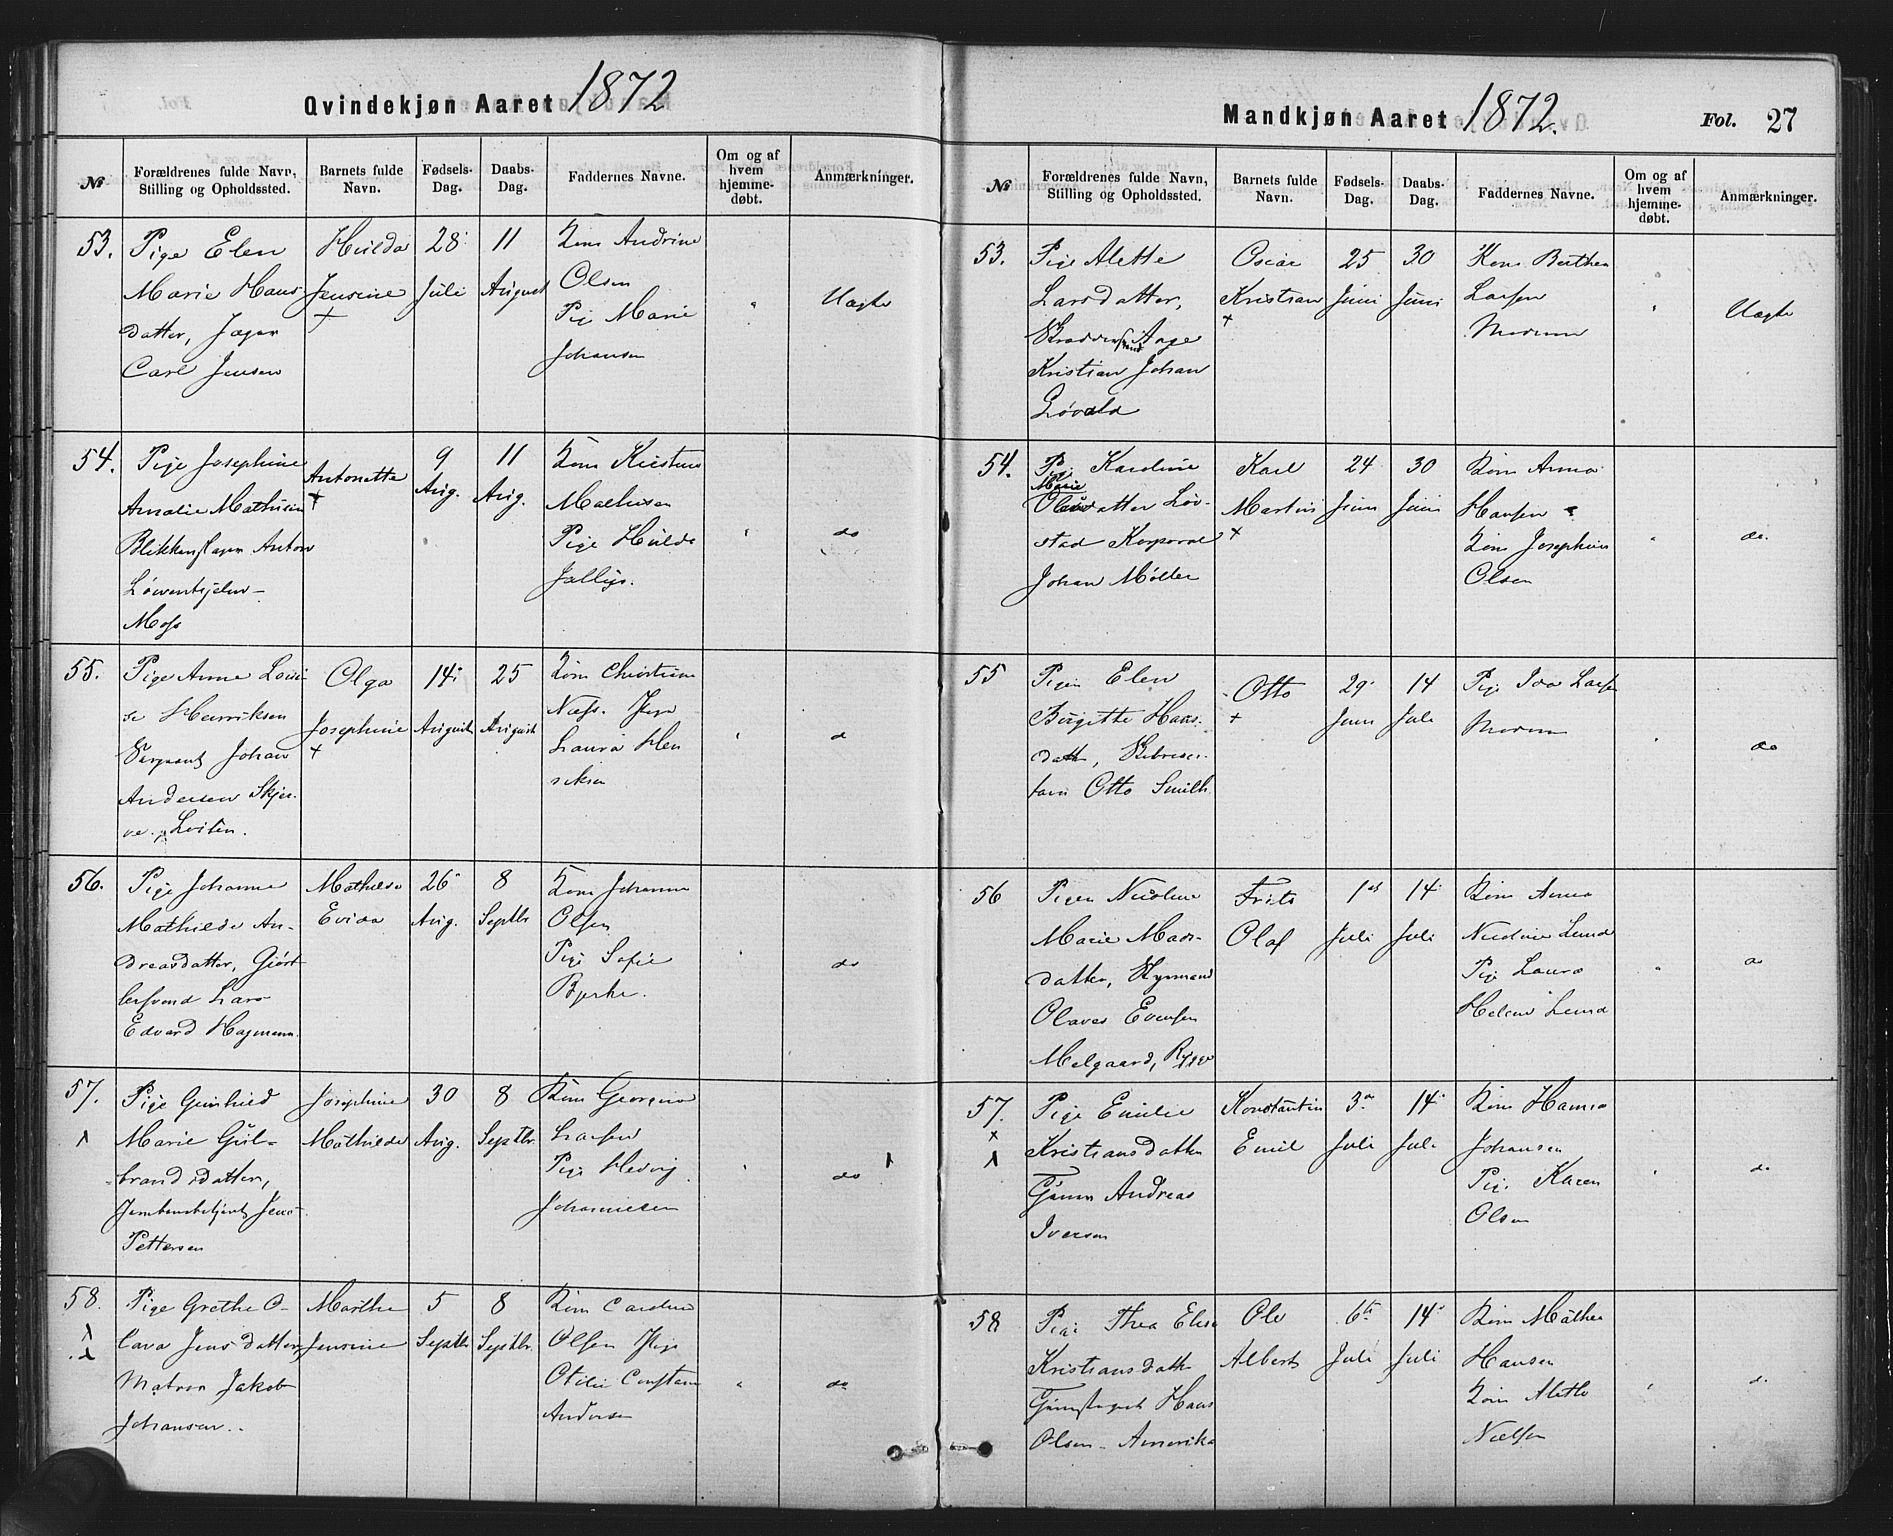 Qvindekjøn Aaret 1872
№
Forældrenes fulde Navn,
Stilling og Opholdssted.
Barnets fulde
Navn.
Fødsels-
Dag.
Daabs-
Dag.
Faddernes Navne.
Om og af
hvem
hjemme-
døbt.
Anmærkninger.
53.
Pige Elen
Marie Hans
datter, Jæger
Carl Jensen
Hulda
Jensine
28
Juli
11
August
Kone Andrine
Olsen
Pige Marie
Johansen
Uægte
54.
Pige Josephine
Amalie Mathisen
Blikkenslager Anton
Moss
Antonette
9
Aug.
11
Aug.
Kone Kirstine
Mathisen
Pige Hulda
do
55.
Pige Anne Loui-
se Henriksen
Sergeant Johan
Andersen Skjer-
ve, Løiten.
Olga
Josephine
14
August
25
August
Kone Christine
Næss. Pige
Laura Hen
riksen
56.
Pige Johanne
Mathilde An-
dreasdatter, Gjørt-
lersvend Lars
Edvard Hagmann.
Mathilde
Evida
26
Aug.
8
Septbr
Kone Johanne
Olsen
Pige Sofie
Bjerke.
do
57.
Pige Gunhild
Marie Gul-
brandsdatter,
Jernbanebetjent Jens
Pettersen
Josephine
Mathilde
30
Aug.
8
Septbr.
Kone Georgine
Larsen
Pige Hedvig
Johannesen
do
58.
Pige Grethe O-
lava Jensdatter,
Matros Jakob
Johansen.
Marthe
Jensine
5
Septbr
8
Septbr.
Kone Caroline
Olsen Pige
Otilie Constance
Andersen
do
Mandkjøn Aaret 1872.
Fol. 27
№
Forældrenes fulde Navn,
Stilling og Opholdssted.
Barnets fulde
Navn.
Fødsels-
Dag.
Daabs-
Dag.
Faddernes Navne.
Om og af
hvem
hjemme-
døbt.
Anmærkninger.
53.
Pige Alette
Larsdatter,
Skræddersvend Aage
Kristian Johan
Oscar
Kristian
25
Juni
30
Juni
Kone Berthea
Larsen
Moderen
Uægte
54.
Pige Karoline
Marie
Olausdatter Løv-
stad Korporal
Johan Møller
Karl
Martin
24
Juni
30
Juni
Kone Anna
Hansen
Kone Josephine
Olsen
do.
55
Pigen Elen
Birgitte Hans-
datter,
Otto Smith
Otto
29
Juni
14
Juli
Pige Ida Larsen
Moderen
do
56
Pigen Nicoline
Marie Mads-
datter, Styrmand
Olaves Evensen
Melgaard, Rygge
Frits
Olaf
1st
Juli
14
Juli
Kone Anna
Nicoline Lund
Pige Laura
Helene Lund
do
57.
Pige Emilie
Kristiansdatter
Andreas
Iversen
Konstantin
Emil
3
Juli
14
Juli
Kone Hanna
Johansen
Pige Karen
Olsen
do
58
Pige Thea Elise
Kristiansdatter
Hans
Olsen - Amerika
Ole
Albert
6te
Juli
14
Juli
Kone Mathea
Hansen
Kone Alethe
Nielsen